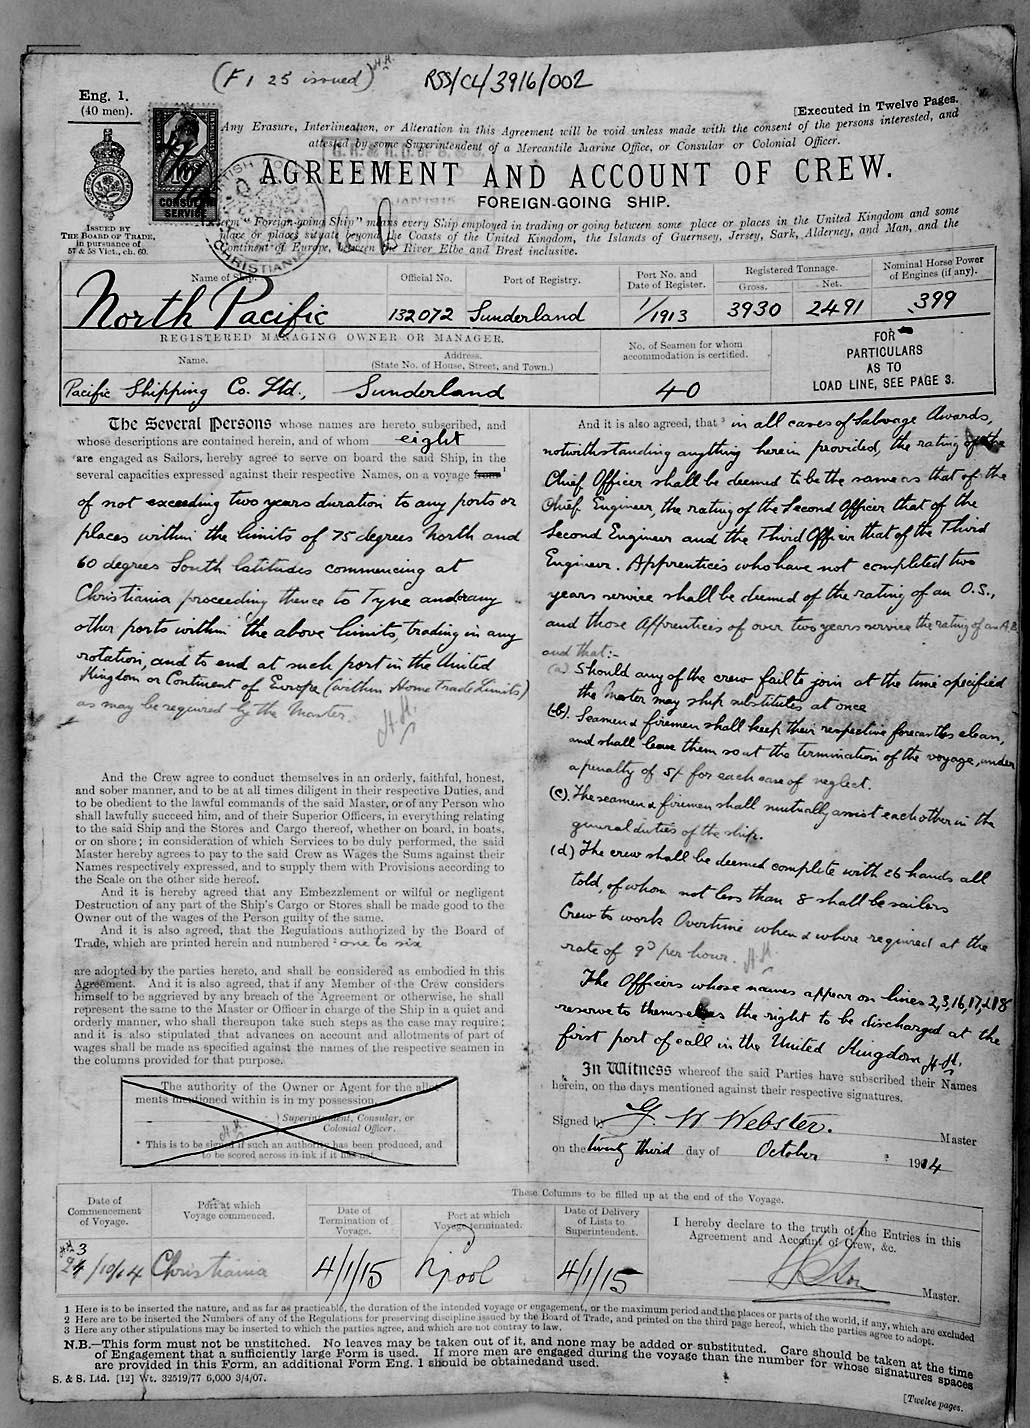 (F 1 25 issued) H.H.
RSS/CL/3916/002
Eng. 1.
(40 men).
[Executed in Twelve Pages.
Any Erasure, Interlineation, or Alteration in this Agreement will be void unless made with the consent of the persons interested, and
attested by some Superintendent of a Mercantile Marine Office, or Consular or Colonial Officer.
AGREEMENT AND ACCOUNT OF CREW.
FOREIGN-GOING SHIP.
CONSULAR
SERVICE
CHRISTIANIA
ISSUED BY
THE BOARD OF TRADE,
in pursuance of
57 & 58 Vict., ch. 60.
Term "Foreign-going Ship" means every Ship employed in trading or going between some place or places in the United Kingdom and some
place or places situate beyond the Coasts of the United Kingdom, the Islands of Guernsey, Jersey, Sark, Alderney, and Man, and the
Continent of Europe, between the River Elbe and Brest inclusive.
Name of Ship.
Official No.
Port of Registry.
Port No. and
Date of Register.
Registered Tonnage.
Gross.
Net.
Nominal Horse Power
of Engines (if any).
North Pacific
132072
Sunderland
1/1913
3930
2491
399
REGISTERED MANAGING OWNER OR MANAGER.
Name.
Address.
(State No. of House, Street, and Town.)
No. of Seamen for whom
accommodation is certified.
FOR
PARTICULARS
AS TO
LOAD LINE, SEE PAGE 3.
Pacific Shipping Co. Ltd.,
Sunderland
40
The Several Persons whose names are hereto subscribed, and
whose descriptions are contained herein, and of whom eight
are engaged as Sailors, hereby agree to serve on board the said Ship, in the
several capacities expressed against their respective Names, on a voyage from 1
of not exceeding two years duration to any ports or
places within the limits of 75 degrees North and
60 degrees South latitudes commencing at
Christiania proceeding thence to Tyne and or any
other ports within the above limits, trading in any
rotation, and to end at such port in the United
Kingdom or Continent of Europe (within Home Trade Limits)
as may be required by the Master.
H.H.
And the Crew agree to conduct themselves in an orderly, faithful, honest,
and sober manner, and to be at all times diligent in their respective Duties, and
to be obedient to the lawful commands of the said Master, or of any Person who
shall lawfully succeed him, and of their Superior Officers, in everything relating
to the said Ship and the Stores and Cargo thereof, whether on board, in boats,
or on shore; in consideration of which Services to be duly performed, the said
Master hereby agrees to pay to the said Crew as Wages the Sums against their
Names respectively expressed, and to supply them with Provisions according to
the Scale on the other side hereof.
And it is hereby agreed that any Embezzlement or wilful or negligent
Destruction of any part of the Ship's Cargo or Stores shall be made good to the
Owner out of the wages of the Person guilty of the same.
And it is also agreed, that the Regulations authorized by the Board of
Trade, which are printed herein and numbered 2 one to six
are adopted by the parties hereto, and shall be considered as embodied in this
Agreement. And it is also agreed, that if any Member of the Crew considers
himself to be aggrieved by any breach of the Agreement or otherwise, he shall
represent the same to the Master or Officer in charge of the Ship in a quiet and
orderly manner, who shall thereupon take such steps as the case may require;
and it is also stipulated that advances on account and allotments of part of
wages shall be made as specified against the names of the respective seamen in
the columns provided for that purpose.
The authority of the Owner or Agent for the allot-
ments mentioned within is in my possession.
Superintendent, Consular, or
Colonial Officer.
H.H.
* This to be signed if such an authority has been produced, and
to be scored across in ink if it has not.
And it is also agreed, that 3 in all cases of Salvage Awards,
notwithstanding anything herein provided, the rating of the
Chief Officer shall be deemed to be the same as that of the
Chief Engineer, the rating of the Second Officer that of the
Second Engineer and the Third Officer that of the Third
Engineer. Apprentices who have not completed two
years service shall be deemed of the rating of an O.S.,
and those Apprentices of over two years service the rating of an A.B.
and that:-
(a) Should any of the crew fail to join at the time specified
the Master may ship substitutes at once
(b). Seamen & firemen shall keep their respective forecastles clean,
and shall leave them so at the termination of the voyage, under
a penalty of 5/ for each case of neglect.
(c). The seamen & firemen shall mutually assist each other in the
general duties of the ship.
(d) The crew shall be deemed complete with 26 hands all
told, of whom not less than 8 shall be sailors
Crew to work Overtime when & where required at the
rate of 9D per hour. H.H.
The Officers whose names appear on lines 2, 3, 16, 17, & 18
reserve to themselves the right to be discharged at the
first port of call in the United Kingdom H.H.
In Witness whereof the said Parties have subscribed their Names
herein, on the days mentioned against their respective signatures.
Signed by G. W. Webster.
Master
on the twenty third day of October 1914
These Columns to be filled up at the end of the Voyage.
Date of
Commencement
of Voyage.
Port at which
Voyage commenced.
Date of
Termination of
Voyage.
Port at which
Voyage terminated.
Date of Delivery
of Lists to
Superintendent.
I hereby declare to the truth of the Entries in this
Agreement and Account of Crew, &c.
H.H. 3
24/10/14
Christiania
4/1/15
L'pool
4/1/15
Master.
1 Here is to be inserted the nature, and as far as practicable, the duration of the intended voyage or engagement, or the maximum period and the places or parts of the world, if any, which are excluded
2 Here are to be inserted the Numbers of any of the Regulations for preserving discipline issued by the Board of Trade, and printed on the third page hereof, which the parties agree to adopt.
3 Here any other stipulations may be inserted to which the parties agree, and which are not contrary to law.
N.B.—This form must not be unstitched. No leaves may be taken out of it, and none may be added or substituted. Care should be taken at the time
of Engagement that a sufficiently large Form is used. If more men are engaged during the voyage than the number for whose signatures spaces
are provided in this Form, an additional Form Eng. 1 should be obtained and used.
S. & S. Ltd. [12] Wt. 32519/77 6,000 3/4/07.
[Twelve pages.